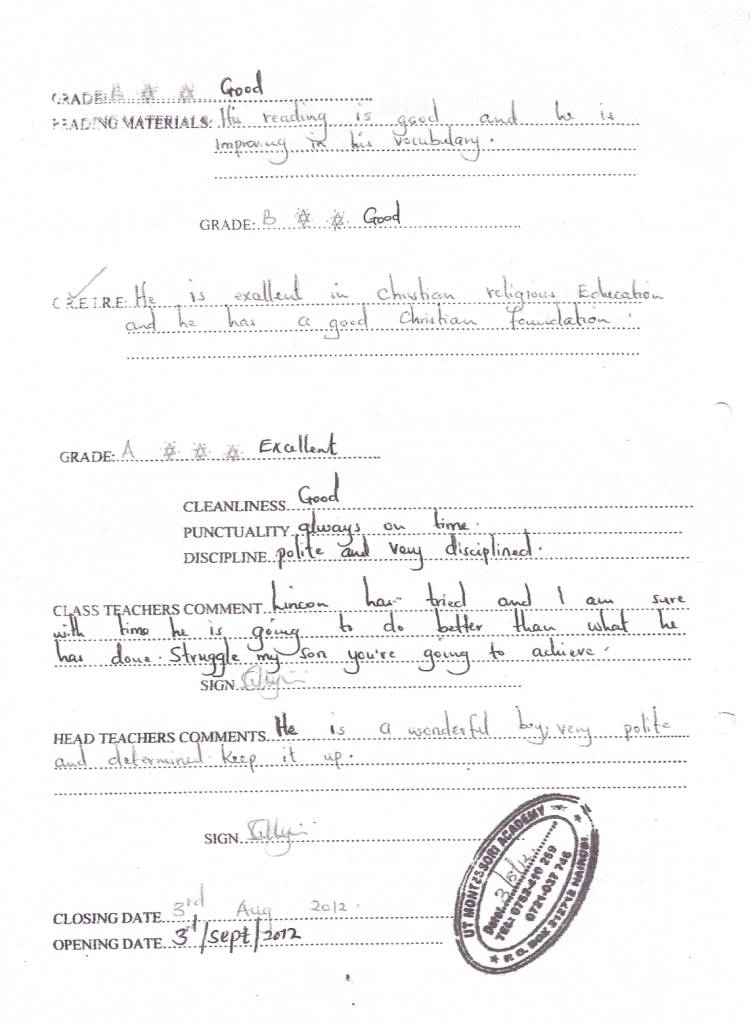 GRADE: B Good
READING MATERIALS: His reading is good and he is
improving in his vocubulary.
GRADE: B Good
C.R.E I.R.E: He is exallent in christian religious Education
and he has a good Christian foundation.
GRADE: A Excellent
CLEANLINESS Good
PUNCTUALITY always on time.
DISCIPLINE polite and very disciplined.
CLASS TEACHERS COMMENT Lincon has tried and I am sure
with time he is going to do better than what he
has done. Struggle my son you're going to achieve.
SIGN
HEAD TEACHERS COMMENTS He is a wonderful boy, very polite
and determined. Keep it up.
SIGN
CLOSING DATE 3rd Aug 2012.
OPENING DATE 3rd/Sept/2012
UT MONTESSORI ACADEMY
Date: 3/8/12
TEL: 0752-410 259
0721-037 746
P. O. BOX NAIROBI